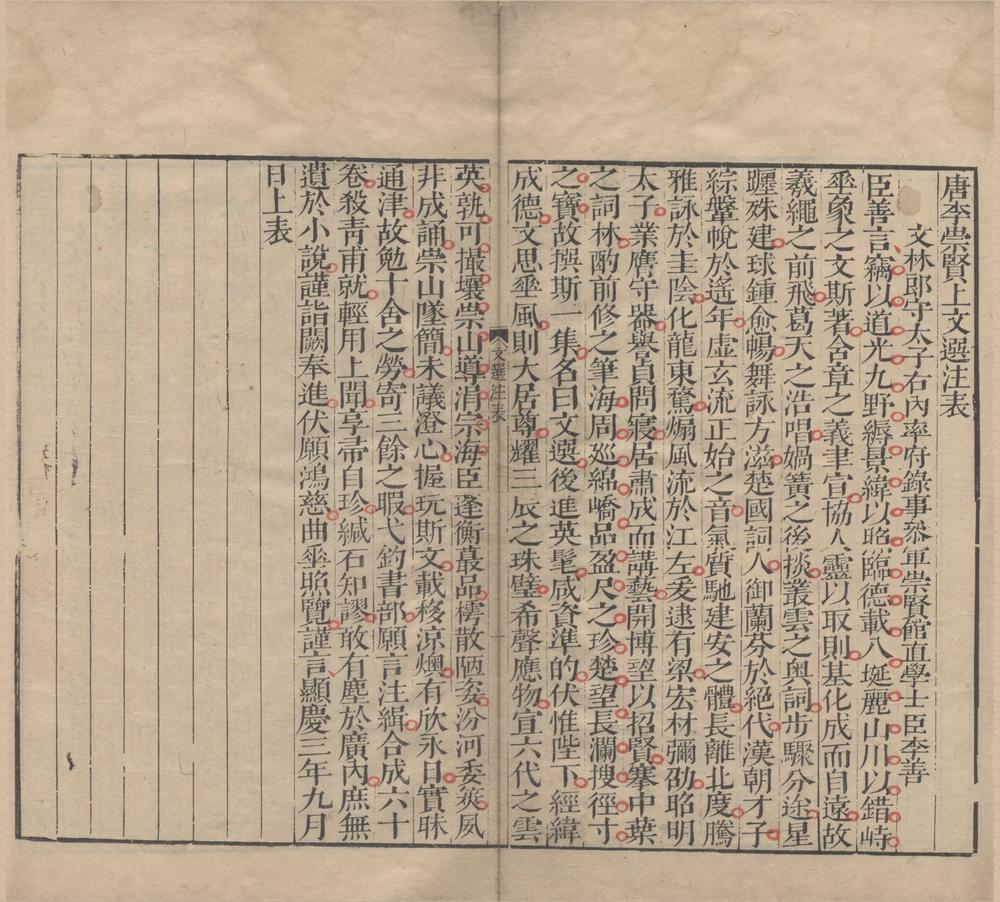 唐李崇賢上文選注表
文林郎守太子右內率府錄事叅軍崇賢館直學士臣李善
臣善言竊以道光九野縟景緯以照臨德載八埏麗山川以錯峙
埀象之文斯著含章之義聿宣協人靈以取則基化成而自遠故
羲繩之前飛葛天之浩唱媧簧之後掞叢雲之奥詞步驟分途星
躔殊建球鍾愈暢舞詠方滋楚國詞人御蘭芬於絶代漢朝才子
綜鞶帨於遙年虛玄流正始之音氣質馳建安之體長離北度騰
雅詠於圭陰化龍東騖煽風流於江左爰逮有梁宏材彌劭昭明
太子業膺守器譽貞問寢居肅成而講藝開博望以招賢搴中葉
之詞林酌前修之筆海周廵緜嶠品盈尺之珍楚望長瀾搜徑寸
之寶故撰斯一集名曰文選後進英髦咸資準的伏惟陛下經緯
成德文思埀風則大居尊耀三辰之珠璧希聲應物宣六代之雲
文選注表
一
英孰可撮壤崇山導涓宗海臣蓬衡蕞品樗散陋姿汾河委筴夙
非成誦崇山墜簡未議澄心握玩斯文載移涼燠有欣永日實昧
通津故勉十舍之勞寄三餘之暇弋釣書部願言注緝合成六十
卷殺青甫就輕用上聞享帚自珍緘石知謬敢有塵於廣內庶無
遺於小說謹詣闕奉進伏願鴻慈曲埀照覽謹言顯慶三年九月
日上表